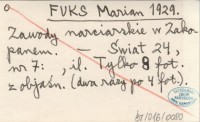 FUKS Marian 1929.
Zawody narciarskie w Zako-
panem. — Świat 24,
nr 7: , il. Tylko 8 fot.
z objaśn. (dwa razy po 4 fot.).